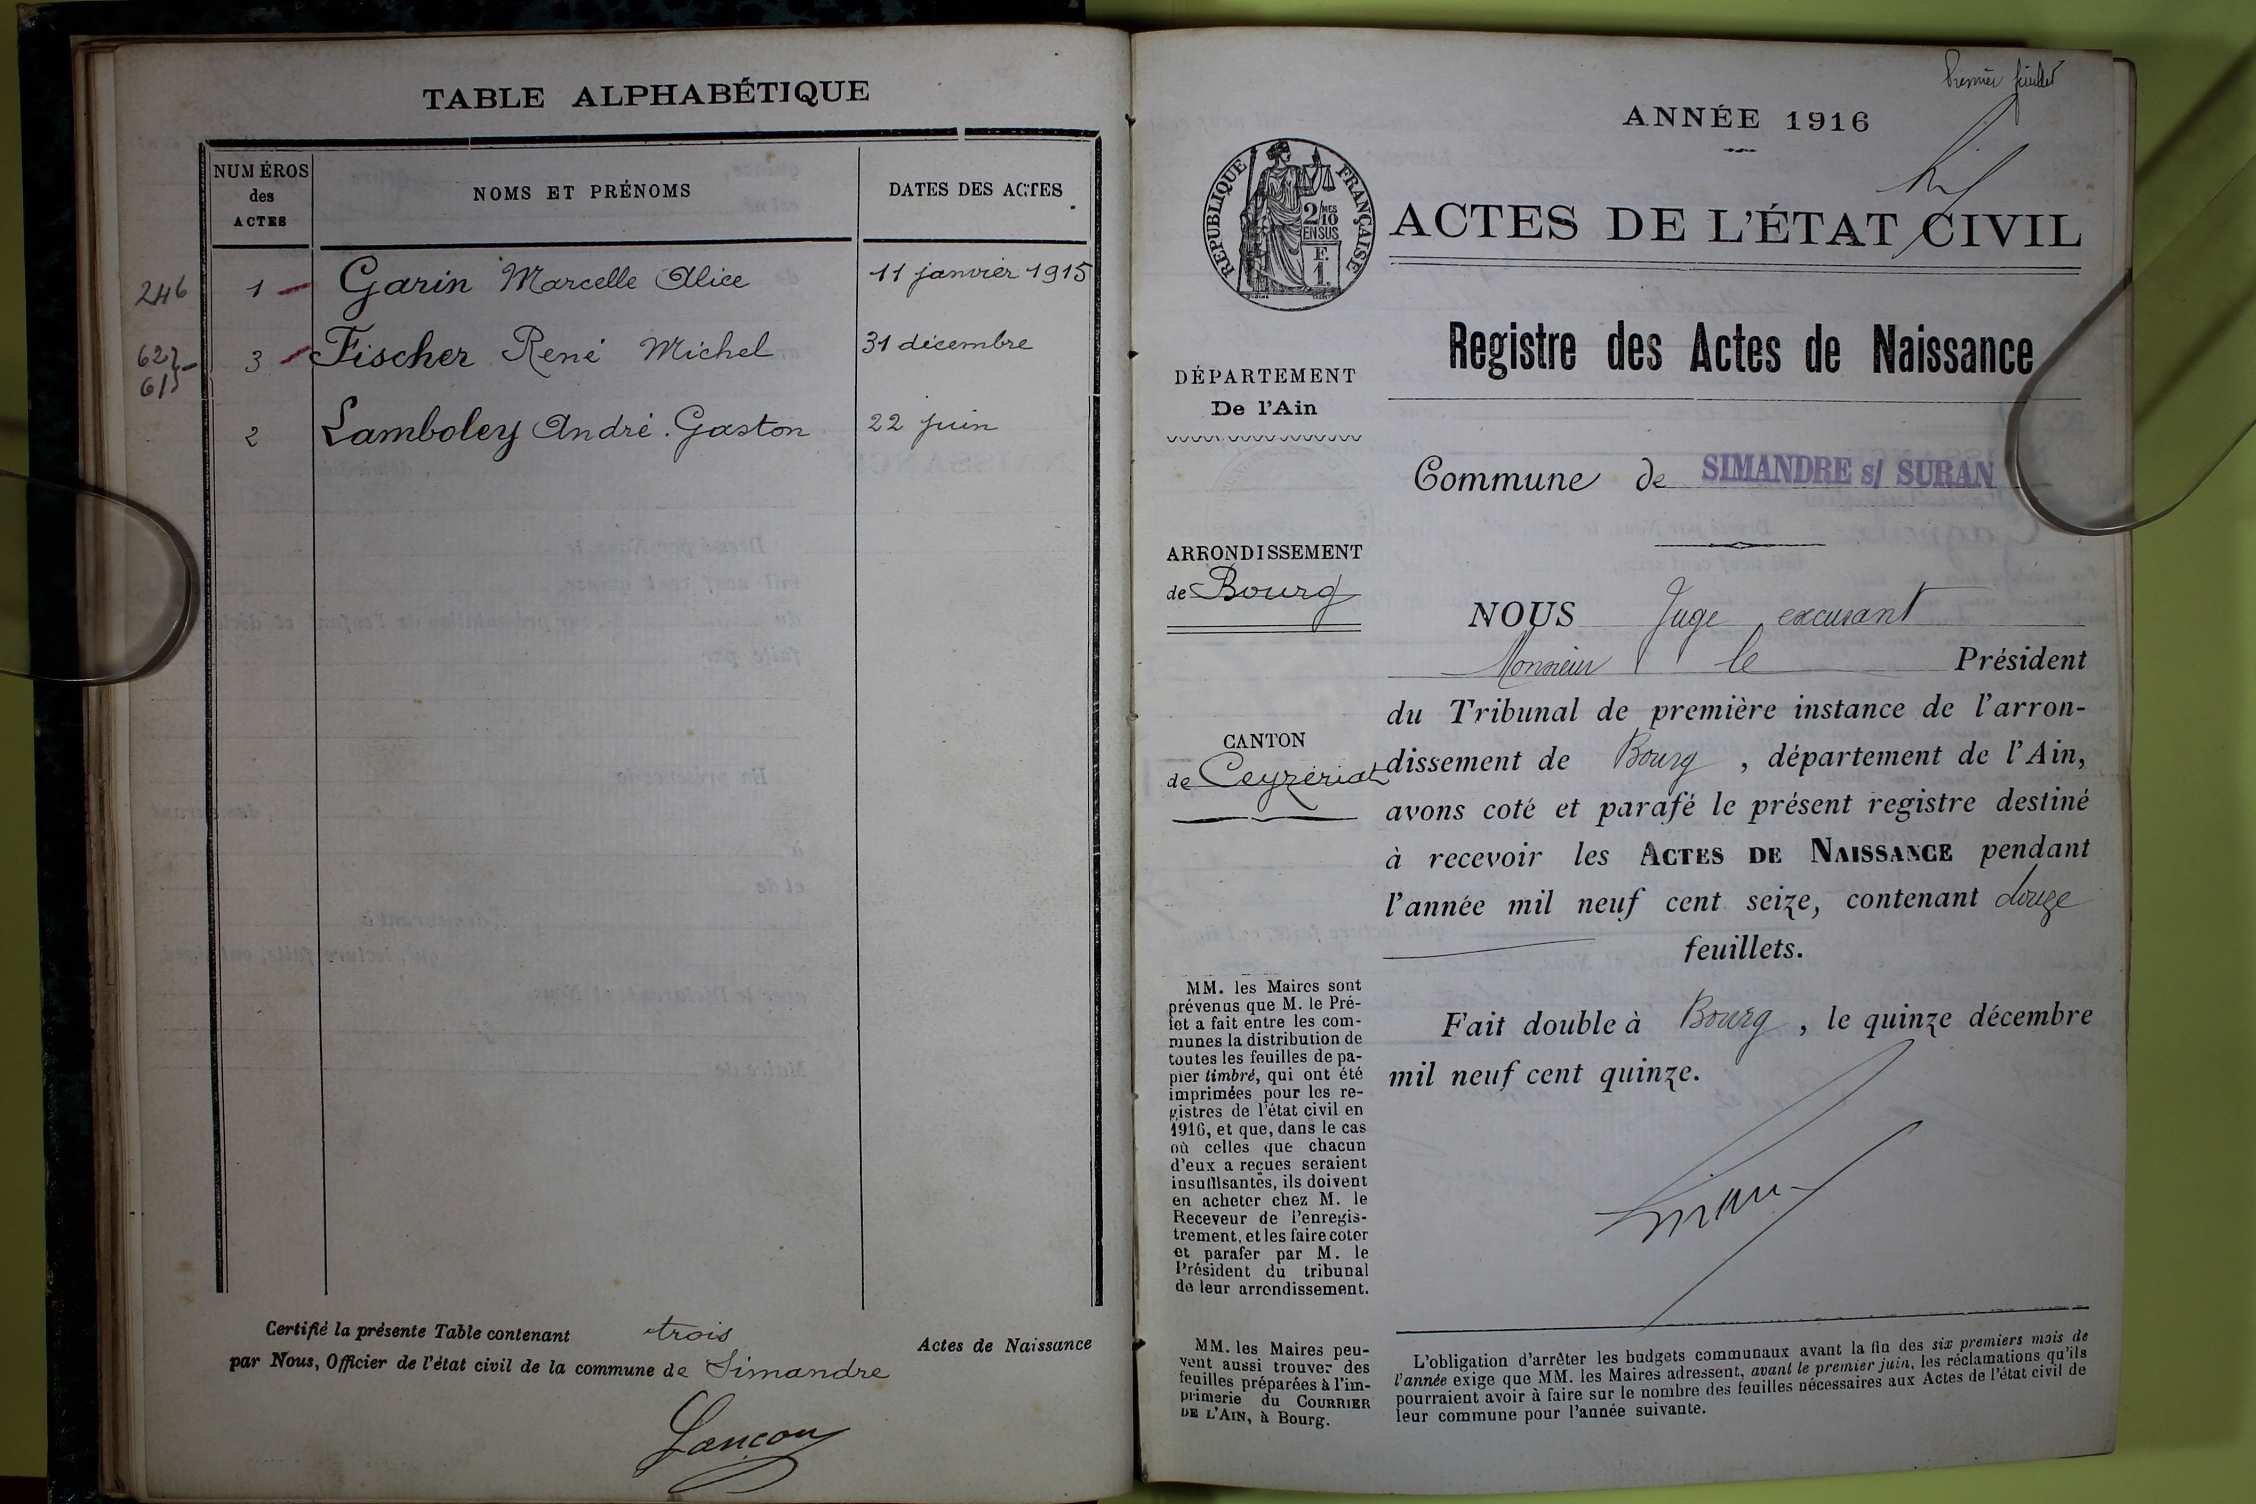 TABLE ALPHABÉTIQUE
NUMÉROS
des
ACTES
NOMS ET PRÉNOMS
DATES DES ACTES
246 1 Garin Marcelle Alice 11 janvier 1915
3 Fischer René Michel 31 décembre
2 Lamboley André Gaston 22 juin
Certifié la présente Table contenant trois Actes de Naissance
par Nous, Officier de l'état civil de la commune de Simandre
Lançon
Premier feuillet
ANNÉE 1916
RÉPUBLIQUE FRANÇAISE
2/MES
10
EN SUS
F.
1.
ACTES DE L'ÉTAT CIVIL
Registre des Actes de Naissance
DÉPARTEMENT
De l'Ain
Commune de SIMANDRE s/ SURAN
ARRONDISSEMENT
de Bourg
CANTON
de Ceyzériat
NOUS Juge excusant
Monsieur le Président
du Tribunal de première instance de l'arron-
dissement de Bourg, département de l'Ain,
avons coté et parafé le présent registre destiné
à recevoir les ACTES DE NAISSANCE pendant
l'année mil neuf cent seize, contenant douze
feuillets.
Fait double à Bourg, le quinze décembre
mil neuf cent quinze.
MM. les Maires sont
prévenus que M. le Pré-
fet a fait entre les com-
munes la distribution de
toutes les feuilles de pa-
pier timbré, qui ont été
imprimées pour les re-
gistres de l'état civil en
1916, et que, dans le cas
où celles que chacun
d'eux a reçues seraient
insuffisantes, ils doivent
en acheter chez M. le
Receveur de l'enregis-
trement, et les faire coter
et parafer par M. le
Président du tribunal
de leur arrondissement.
MM. les Maires peu-
vent aussi trouver des
feuilles préparées à l'im-
primerie du COURRIER
DE L'AIN, à Bourg.
L'obligation d'arrêter les budgets communaux avant la fin des six premiers mois de
l'année exige que MM. les Maires adressent, avant le premier juin, les réclamations qu'ils
pourraient avoir à faire sur le nombre des feuilles nécessaires aux Actes de l'état civil de
leur commune pour l'année suivante.